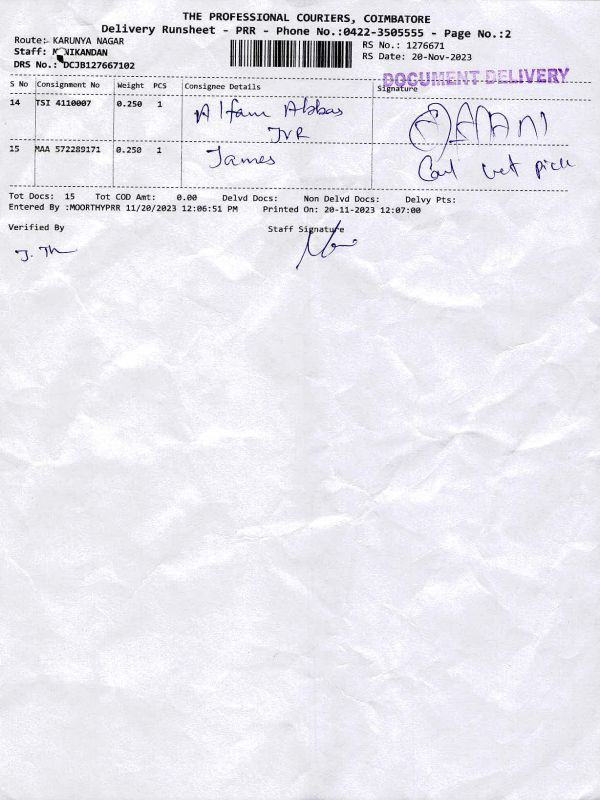 THE PROFESSIONAL COURIERS, COIMBATORE
Delivery Runsheet - PRR - Phone No.:0422-3505555 - Page No.:2
Route: KARUNYA NAGAR
RS No.: 1276671
Staff: M NIKANDAN
RS Date: 20-Nov-2023
DRS No.: DCJB127667102
DOCUMENT DELIVERY
S No Consignment No Weight PCS Consignee Details Signature
14 TSI 4110007 0.250 1 Alfam Abbas
JVR
15 MAA 572289171 0.250 1 James
Tot Docs: 15 Tot COD Amt: 0.00 Delvd Docs: Non Delvd Docs: Delvy Pts:
Entered By :MOORTHYPRR 11/20/2023 12:06:51 PM Printed On: 20-11-2023 12:07:00
Verified By Staff Signature